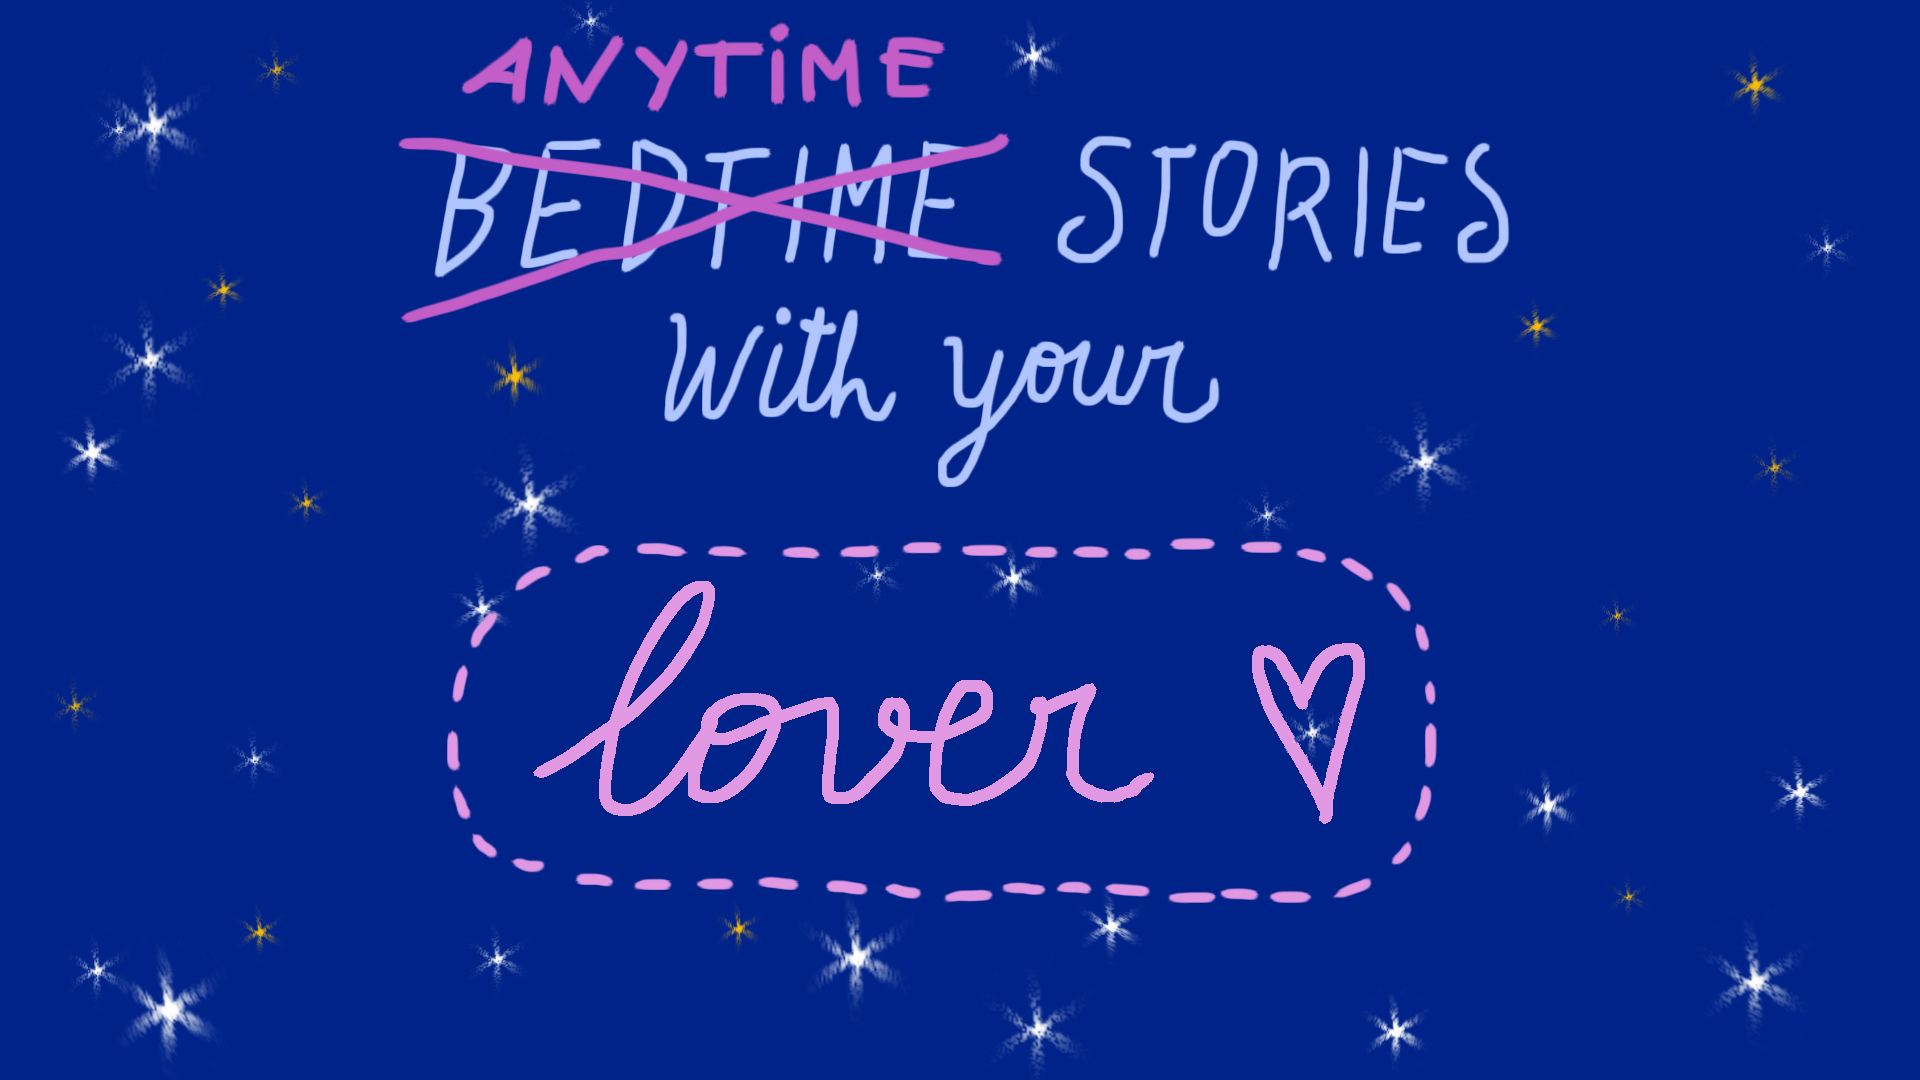 ANYTIME
BEDTIME STORIES
with your
lover